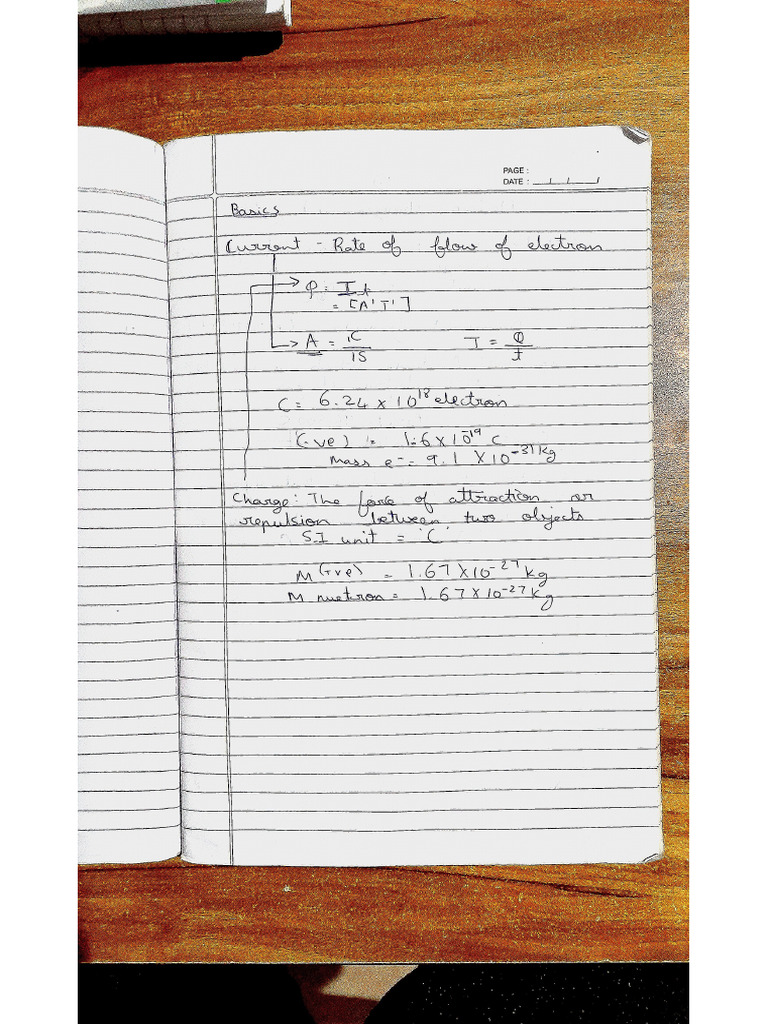 PAGE :
DATE : __/__/__
Basics
Current - Rate of flow of electron
Q = I t
= [A¹ T¹]
A = 1C / 1S    I = Q / t
C = 6.24 x 10¹⁸ electron
(-ve) = 1.6 x 10⁻¹⁹ C
Mass e⁻ = 9.1 x 10⁻³¹ kg
Charge : The force of attraction or
repulsion between two objects
S.I unit = 'C'
M (+ve) = 1.67 x 10⁻²⁷ kg
M nuetron = 1.67 x 10⁻²⁷ kg